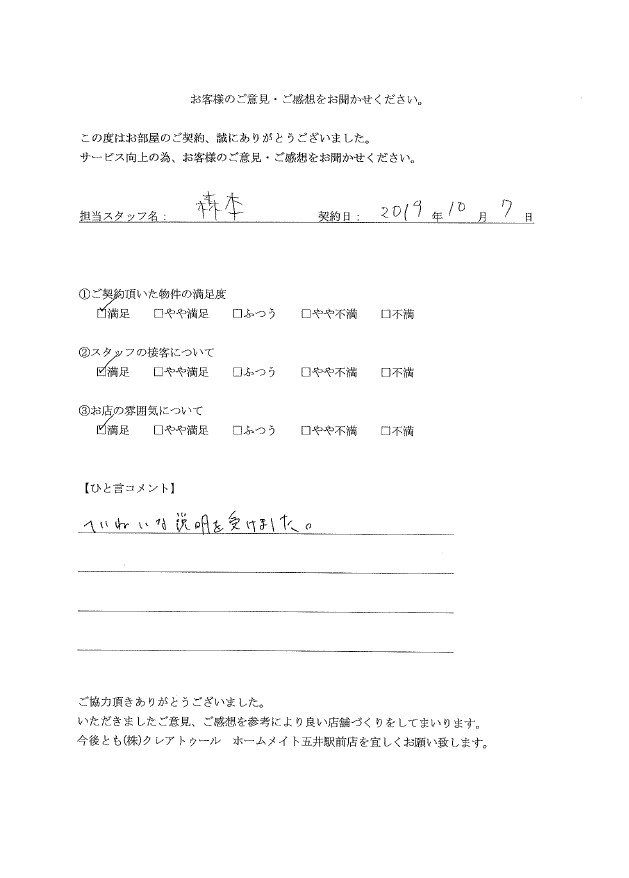 お客様のご意見・ご感想をお聞かせください。
この度はお部屋のご契約、誠にありがとうございました。
サービス向上の為、お客様のご意見・ご感想をお聞かせください。
担当スタッフ名： 森本 契約日： 2019 年 10 月 7 日
①ご契約頂いた物件の満足度
☑満足 □やや満足 □ふつう □やや不満 □不満
②スタッフの接客について
☑満足 □やや満足 □ふつう □やや不満 □不満
③お店の雰囲気について
☑満足 □やや満足 □ふつう □やや不満 □不満
【ひと言コメント】
ていねいな説明を受けました。
ご協力頂きありがとうございました。
いただきましたご意見、ご感想を参考により良い店舗づくりをしてまいります。
今後とも(株)クレアトゥール　ホームメイト五井駅前店を宜しくお願い致します。